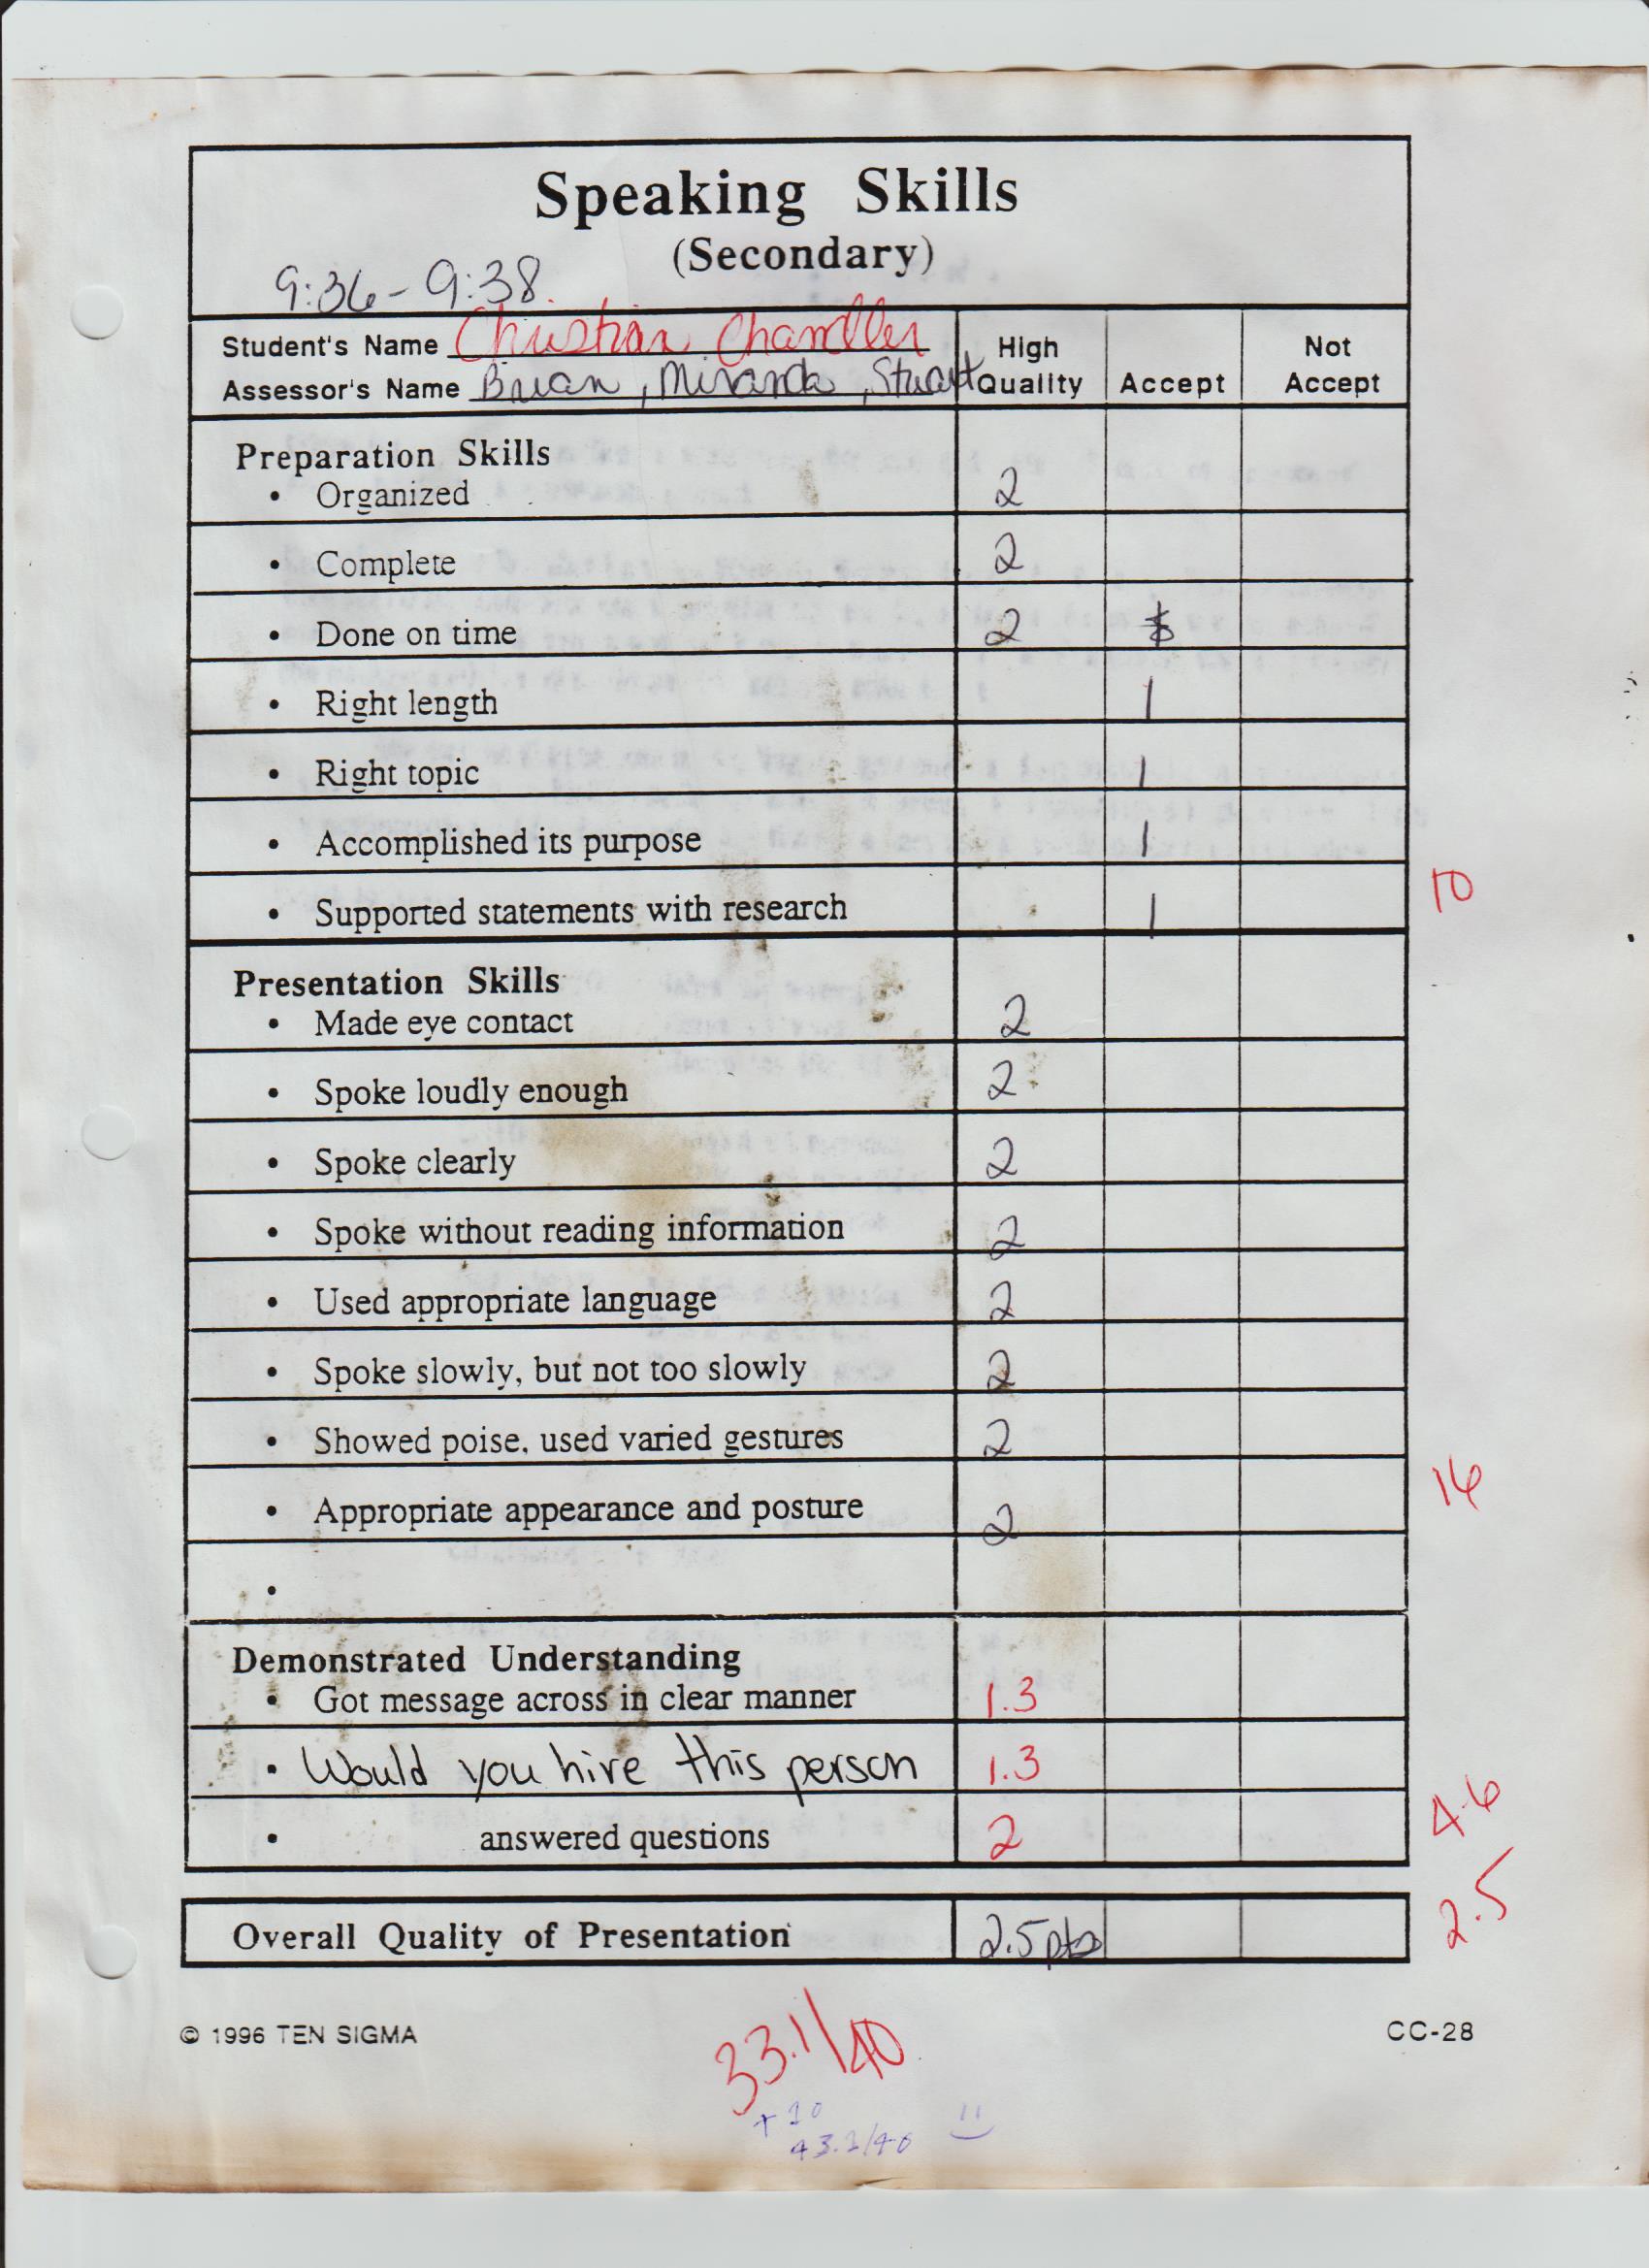 Speaking Skills
(Secondary)
9:36-9:38
Student's Name Christian Chandler
Assessor's Name Brian, Miranda, Stuart
High Quality
Accept
Not Accept
Preparation Skills
• Organized 2
• Complete 2
• Done on time 2
• Right length 1
• Right topic 1
• Accomplished its purpose 1
• Supported statements with research 1
10
Presentation Skills
• Made eye contact 2
• Spoke loudly enough 2
• Spoke clearly 2
• Spoke without reading information 2
• Used appropriate language 2
• Spoke slowly, but not too slowly 2
• Showed poise, used varied gestures 2
• Appropriate appearance and posture 2
16
•
Demonstrated Understanding
• Got message across in clear manner 1.3
• Would you hire this person 1.3
• answered questions 2
4.6
Overall Quality of Presentation 2.5pts
2.5
© 1996 TEN SIGMA
CC-28
33.1/40
+10
43.1/40